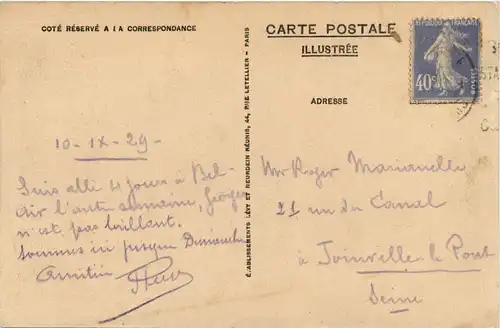 COTÉ RÉSERVÉ A LA CORRESPONDANCE
10-IX-29
Suis allé 4 jours à Bel-
Air l'autre semaine, Georges
n'est pas brillant.
Sommes ici jusque Dimanche
Amitiés
ÉTABLISSEMENTS LÉVY ET NEURDEIN RÉUNIS, 44, RUE LETELLIER - PARIS
CARTE POSTALE
ILLUSTRÉE
ADRESSE
RÉPUBLIQUE FRANÇAISE
40c
POSTES
Mr Roger Marianelle
21 rue du Canal
à Joinville-le-Pont
Seine